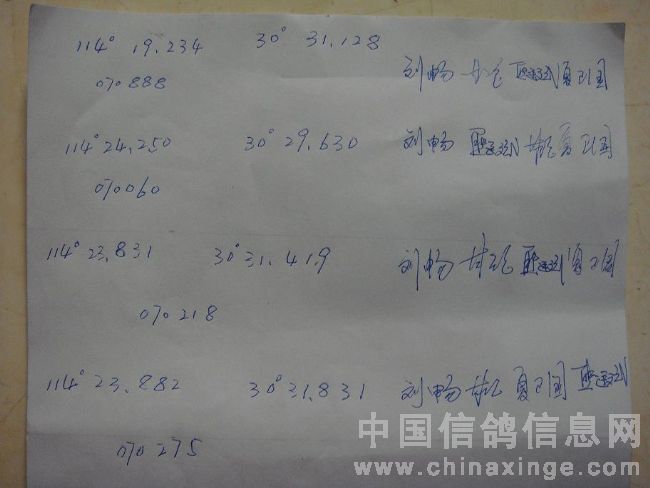 114° 19.234 30° 31.128
070888
刘畅 夏卫国
114° 24.250 30° 29.630
刘畅 夏卫国
070060
114° 23.831 30° 31.419
刘畅 夏卫国
070218
114° 23.882 30° 31.831
刘畅 夏卫国
070275
中国信鸽信息网
www.chinaxinge.com